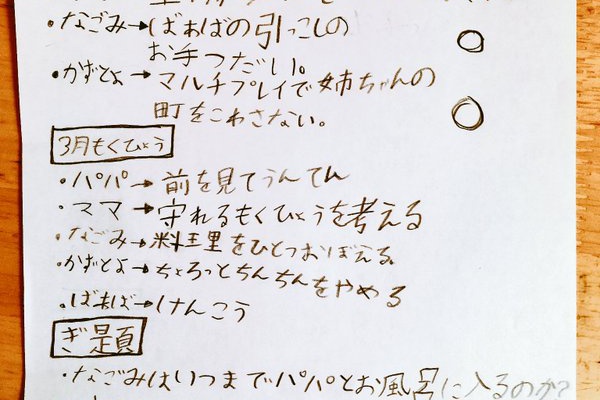 ・なごみ→ばぁばの引っこしの
お手つだい。
・かずとよ→マルチプレイで姉ちゃんの
町をこわさない。
3月もくひょう
・パパ→前を見てうんてん
・ママ→守れるもくひょうを考える
・なごみ→料理をひとつおぼえる。
・かずとよ→ちょろっとちんちんをやめる
・ばぁば→けんこう
ぎ題
・なごみはいつまでパパとお風呂に入るのか?